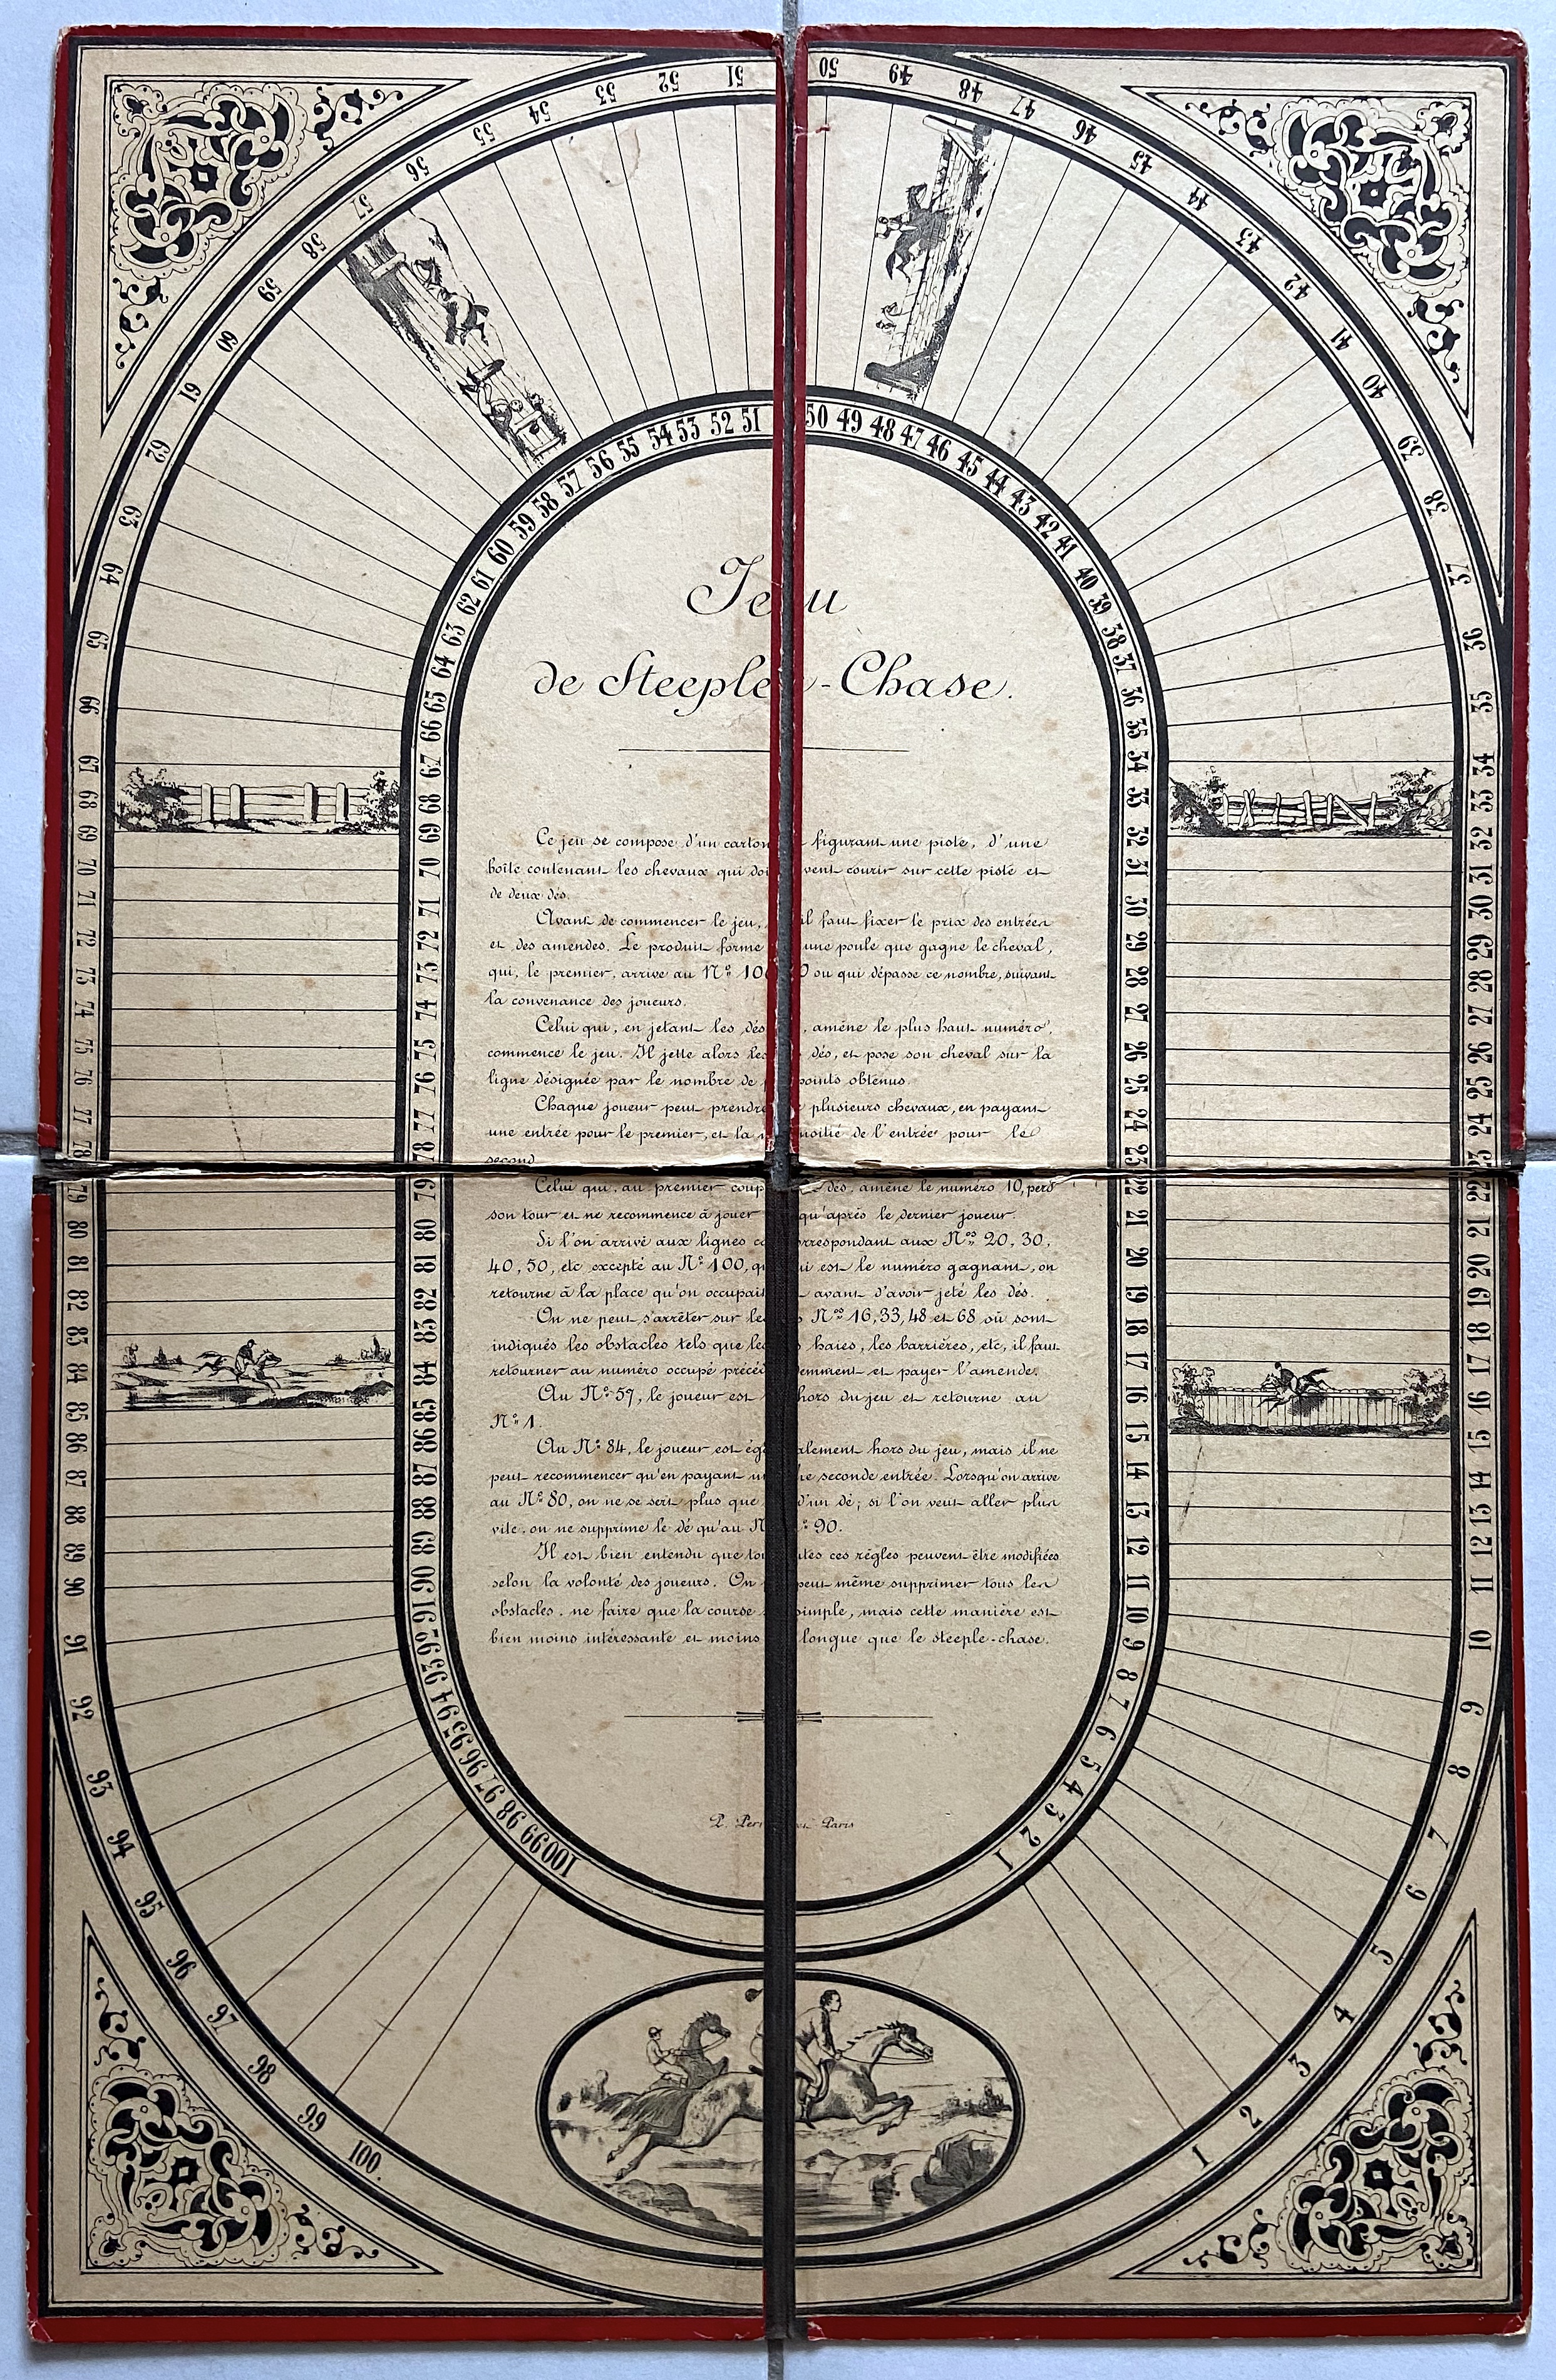 51 50
52 49
53 48
54 47
55 46
56 45
57 44
58 43
59 42
60 41
61 40
62 39
63 38
64 37
65 36
66 35
67 34
68 33
69 32
70 31
71 30
72 29
73 28
74 27
75 26
76 25
77 24
78 23
79 22
80 21
81 20
82 19
83 18
84 17
85 16
86 15
87 14
88 13
89 12
90 11
91 10
92 9
93 8
94 7
95 6
96 5
97 4
98 3
99 2
100. 1
51 50
52 49
53 48
54 47
55 46
56 45
57 44
58 43
59 42
60 41
61 40
62 39
63 38
64 37
65 36
66 35
67 34
68 33
69 32
70 31
71 30
72 29
73 28
74 27
75 26
76 25
77 24
78 23
79 22
80 21
81 20
82 19
83 18
84 17
85 16
86 15
87 14
88 13
89 12
90 11
91 10
92 9
93 8
94 7
95 6
96 5
97 4
98 3
99 2
100 1
Jeu
de Steeple-Chase.
Ce jeu se compose d'un carton figurant une piste, d'une
boîte contenant les chevaux qui doivent courir sur cette piste et
de deux dés.
Avant de commencer le jeu, il faut fixer le prix des entrées
et des amendes. Le produit forme une poule que gagne le cheval,
qui, le premier, arrive au N° 100 ou qui dépasse ce nombre, suivant
la convenance des joueurs.
Celui qui, en jetant les dés, amène le plus haut numéro,
commence le jeu. Il jette alors les dés, et pose son cheval sur la
ligne désignée par le nombre de points obtenus.
Chaque joueur peut prendre plusieurs chevaux, en payant
une entrée pour le premier, et la moitié de l'entrée pour le
second.
Celui qui, au premier coup de dés, amène le numéro 10, perd
son tour et ne recommence à jouer qu'après le dernier joueur.
Si l'on arrive aux lignes correspondant aux Nos 20, 30,
40, 50, etc excepté au N° 100, qui est le numéro gagnant, on
retourne à la place qu'on occupait avant d'avoir jeté les dés.
On ne peut s'arrêter sur les Nos 16, 33, 48 et 68 où sont
indiqués les obstacles tels que les haies, les barrières, etc, il faut
retourner au numéro occupé précédemment et payer l'amende.
Au N° 57, le joueur est hors du jeu et retourne au
N° 1.
Au N° 84, le joueur est également hors du jeu, mais il ne
peut recommencer qu'en payant une seconde entrée. Lorsqu'on arrive
au N° 80, on ne se sert plus que d'un dé; si l'on veut aller plus
vite, on ne supprime le dé qu'au N° 90.
Il est bien entendu que toutes ces règles peuvent être modifiées
selon la volonté des joueurs. On peut même supprimer tous les
obstacles, ne faire que la course simple, mais cette manière est
bien moins intéressante et moins longue que le steeple-chase.
Paris